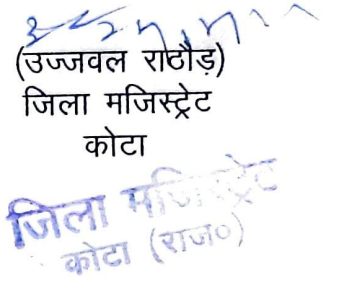 (उज्जवल राठौड़)
जिला मजिस्ट्रेट
कोटा
जिला मजिस्ट्रेट
कोटा (राज०)